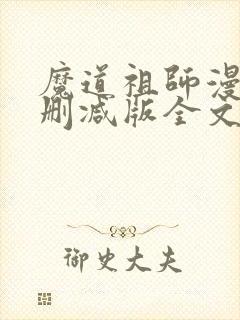 魔道祖師漫
删减版全文
御史大夫